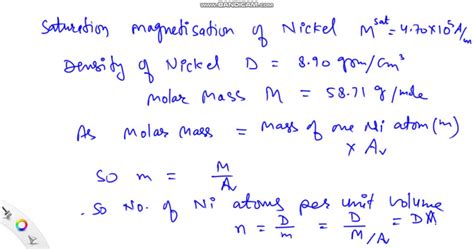 WWW.BANDICAM.COM
Saturation magnetisation of Nickel M^sat = 4.70×10⁵ A/m
Density of Nickel D = 8.90 gm/cm³
Molar Mass M = 58.71 g/mole
As Molar Mass = Mass of one Ni atom (m)
× Av
So m = M/Av
. So No. of Ni atoms per unit volume
n = D/m = D/M/Av = DA